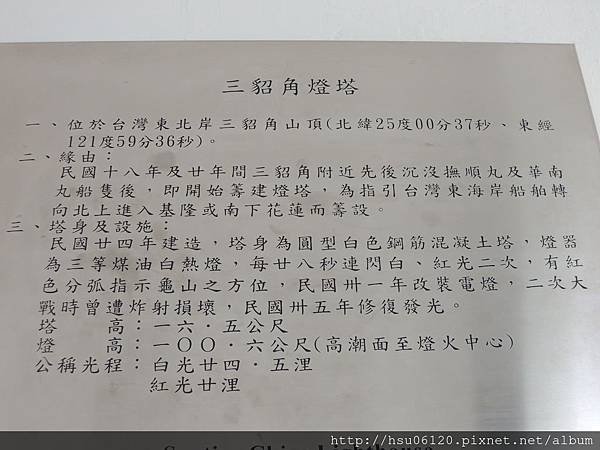 三貂角燈塔
一、位於台灣東北岸三貂角山頂(北緯25度00分37秒、東經
121度59分36秒)。
二、緣由：
民國十八年及廿年間三貂角附近先後沉沒撫順丸及華南
丸船隻後，即開始籌建燈塔，為指引台灣東海岸船舶轉
向北上進入基隆或南下花蓮而籌設。
三、塔身及設施：
民國廿四年建造，塔身為圓型白色鋼筋混凝土塔，燈器
為三等煤油白熱燈，每廿八秒連閃白、紅光二次，有紅
色分弧指示龜山之方位，民國卅一年改裝電燈，二次大
戰時曾遭炸射損壞，民國卅五年修復發光。
塔　　高：一六．五公尺
燈　　高：一〇〇．六公尺(高潮面至燈火中心)
公稱光程：白光廿四．五浬
紅光廿浬
http://hsu06120.pixnet.net/album